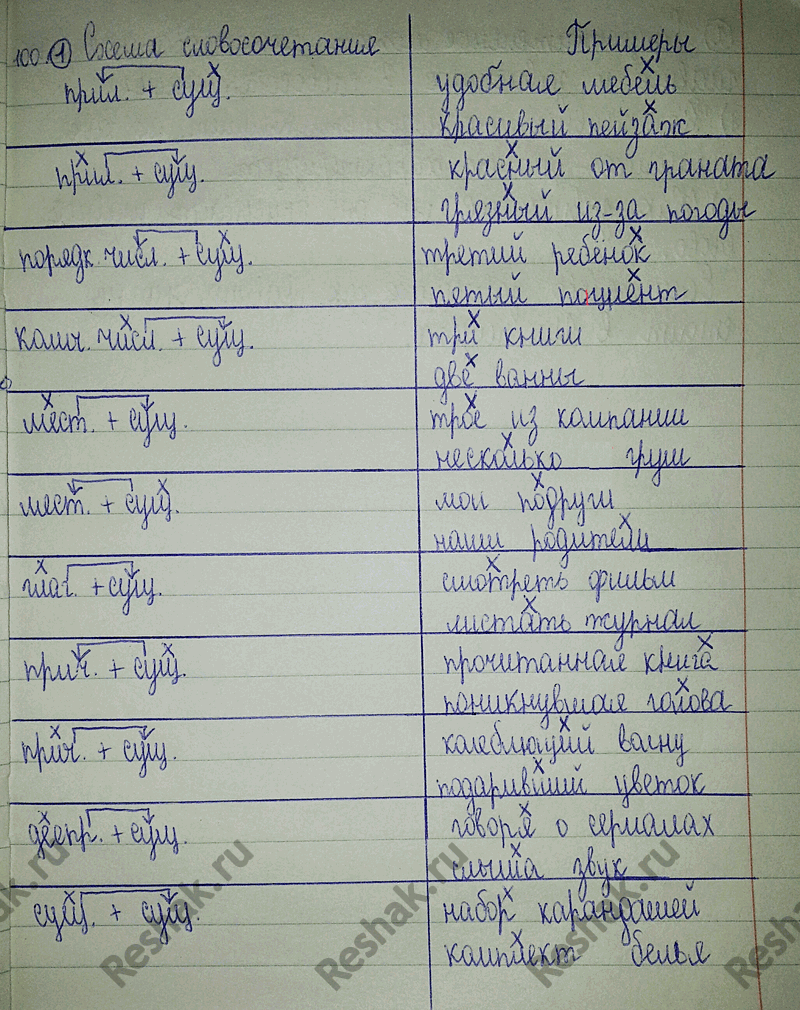 100. 1 Схема словосочетания Примеры
прил. + сущ. удобная мебель
красивый пейзаж
прил. + сущ. красный от граната
грязный из-за погоды
порядк. числ. + сущ. третий ребёнок
пятый пациент
колич. числ. + сущ. три книги
две ванны
мест. + сущ. трое из компании
несколько груш
мест. + сущ. мои подруги
наши родители
глаг. + сущ. смотреть фильм
листать журнал
прич. + сущ. прочитанная книга
поникнувшая голова
прич. + сущ. колеблющий волну
подаривший цветок
деепр. + сущ. говоря о сериалах
слыша звук
сущ. + сущ. набор карандашей
комплект белья
Reshak.ru
Reshak.ru
Reshak.ru
Reshak.ru
Reshak.ru